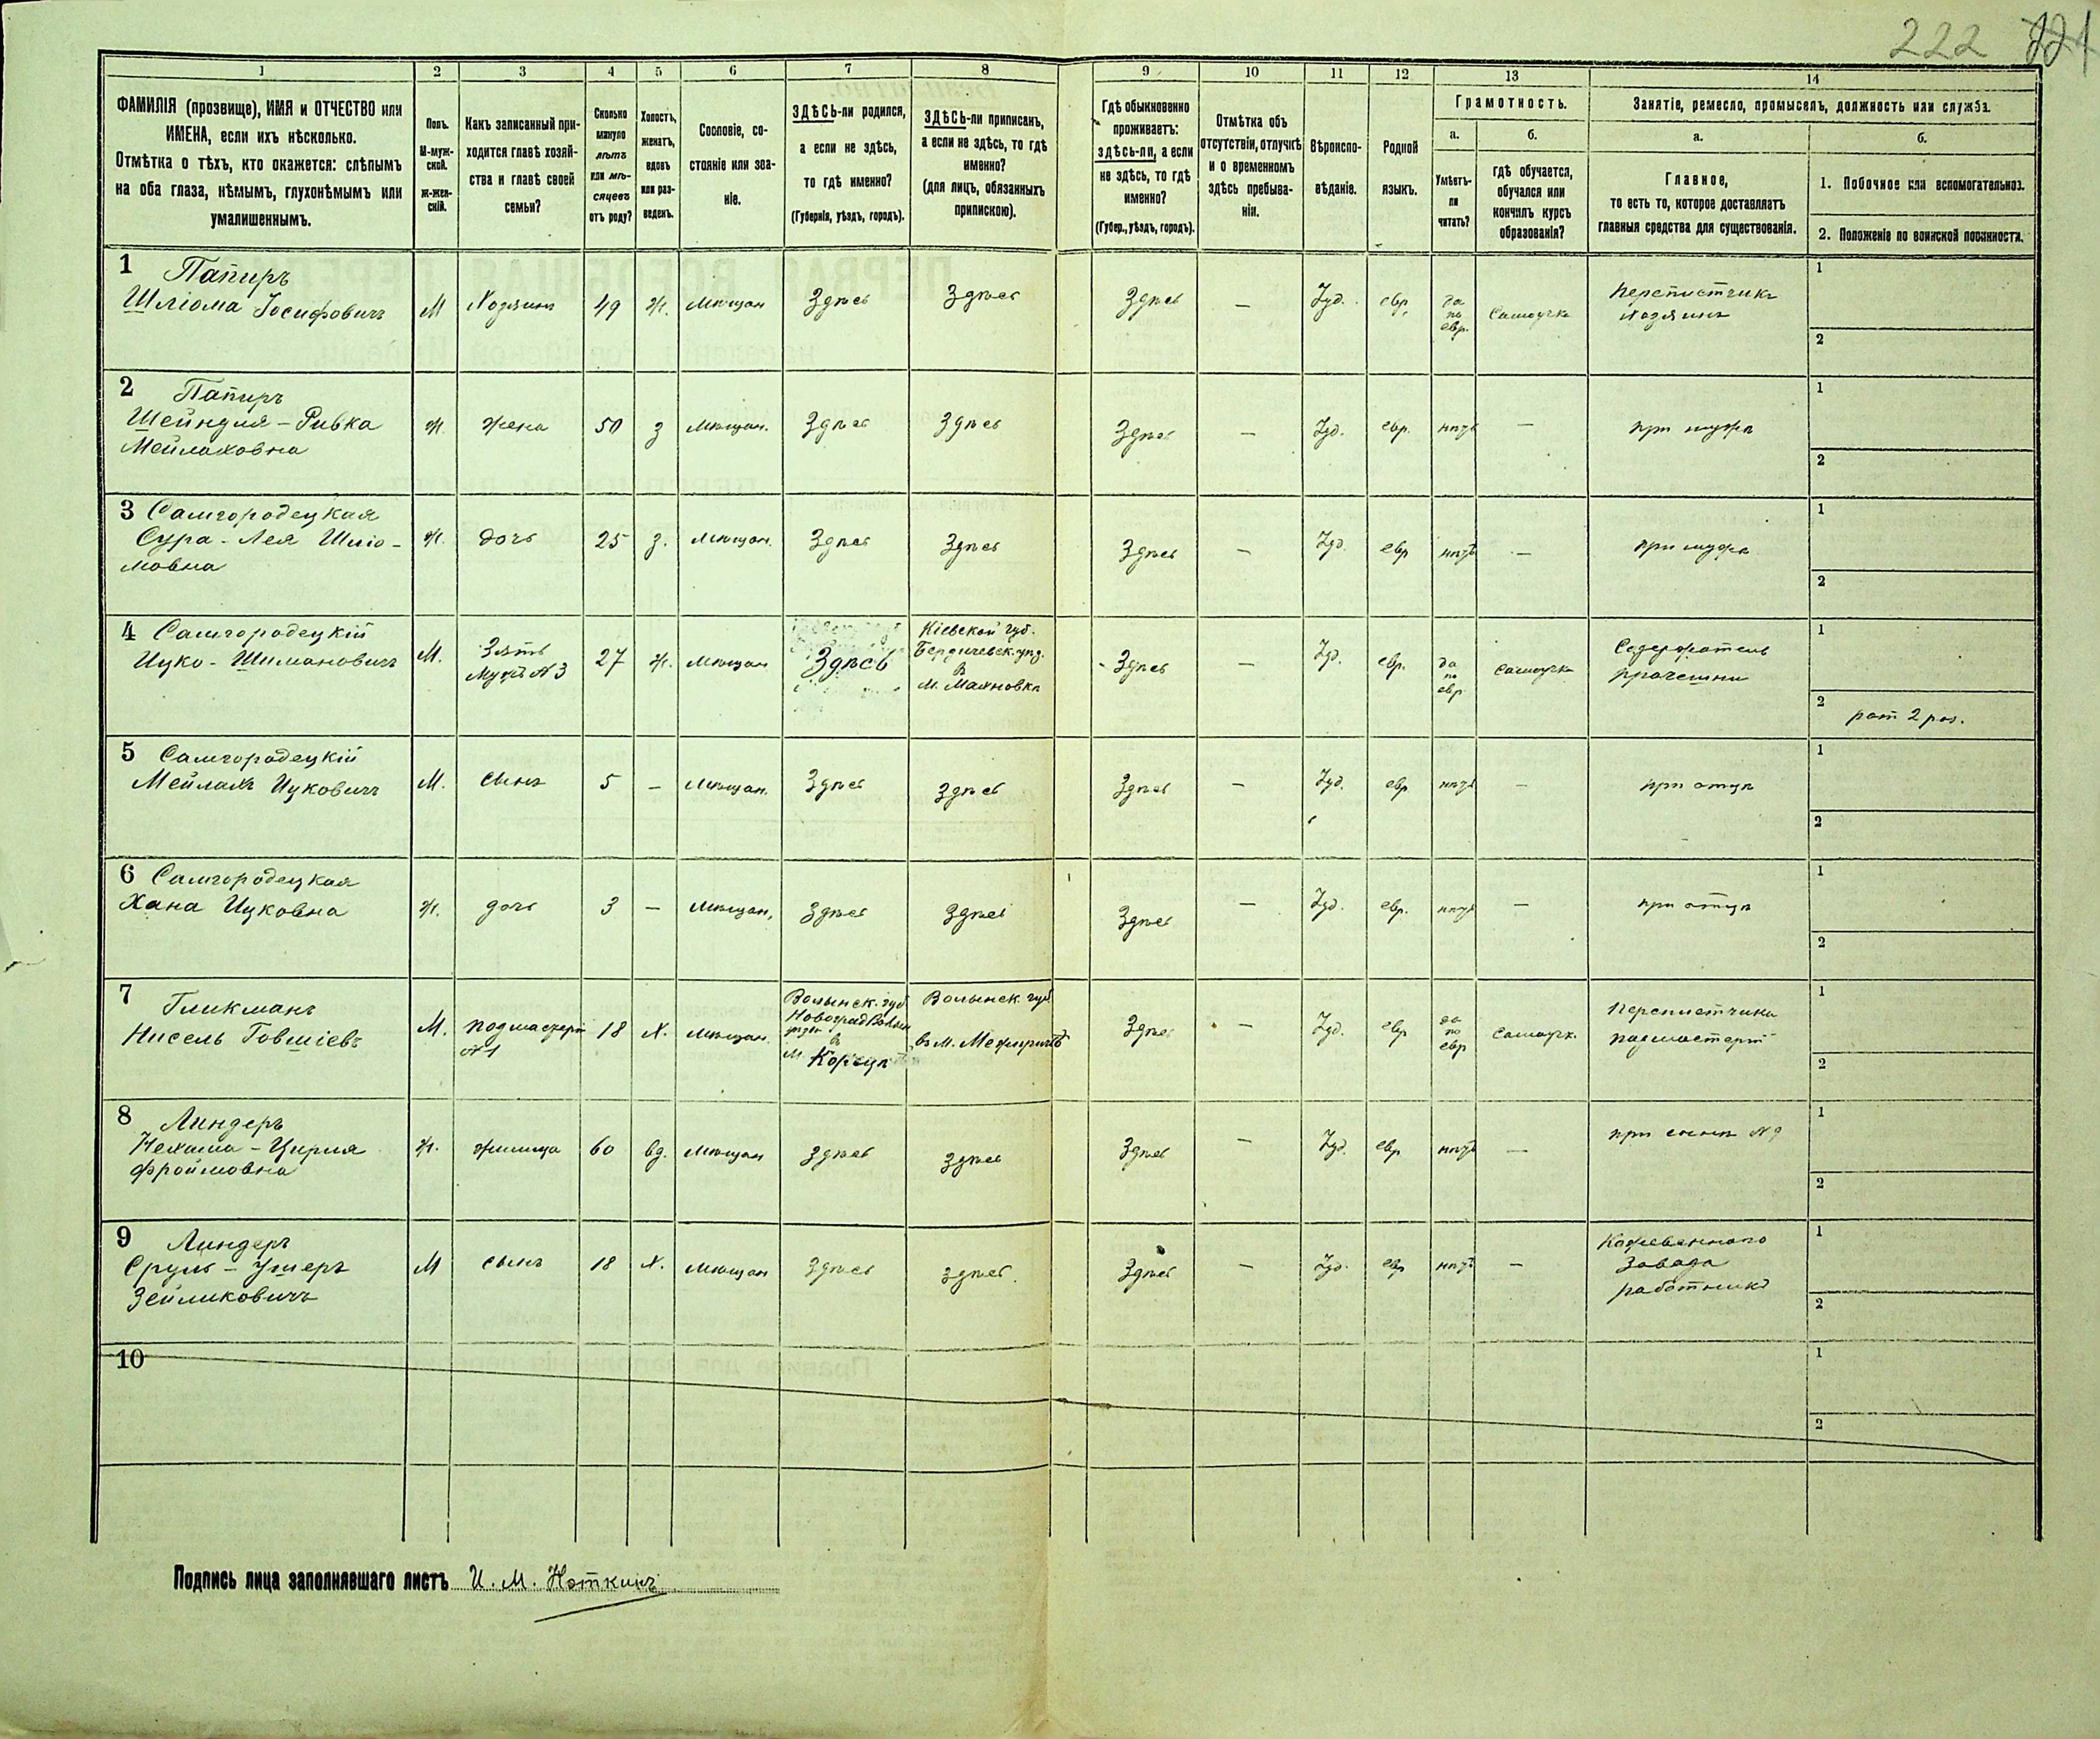 222
1 2 3 4 5 6 7 8 9 10 11 12 13 14
ФАМИЛІЯ (прозвище), ИМЯ и ОТЧЕСТВО или
ИМЕНА, если ихъ нѣсколько.
Отмѣтка о тѣхъ, кто окажется: слѣпымъ
на оба глаза, нѣмымъ, глухонѣмымъ или
умалишеннымъ.
Полъ.
М-муж-
ской.
Ж-жен-
скій.
Какъ записанный при-
ходится главѣ хозяй-
ства и главѣ своей
семьи?
Сколько
минуло
лѣтъ
или мѣ-
сяцевъ
отъ роду?
Холостъ,
женатъ,
вдовъ
или раз-
веденъ.
Сословіе, со-
стояніе или зва-
ніе.
ЗДѢСЬ-ли родился,
а если не здѣсь,
то гдѣ именно?
(Губернія, уѣздъ, городъ).
ЗДѢСЬ-ли приписанъ,
а если не здѣсь, то гдѣ
именно?
(для лицъ, обязанныхъ
припискою).
Гдѣ обыкновенно
проживаетъ:
здѣсь-ли, а если
не здѣсь, то гдѣ
именно?
(Губер., уѣздъ, городъ).
Отмѣтка объ
отсутствіи, отлучкѣ
и о временномъ
здѣсь пребыва-
ніи.
Вѣроиспо-
вѣданіе.
Родной
языкъ.
Грамотность.
а.
Умѣетъ-
ли
читать?
б.
гдѣ обучается,
обучался или
кончилъ курсъ
образованія?
Занятіе, ремесло, промыселъ, должность или служба.
а.
Главное,
то есть то, которое доставляетъ
главныя средства для существованія.
б.
1. Побочное или вспомогательное.
2. Положеніе по воинской повинности.
1 Папиръ
Шліома Іосифовичъ
М
Хозяинъ
49
Ж.
Мѣщан
Здѣсь
Здѣсь
Здѣсь
—
Іуд.
евр.
да
по
евр.
Самоучка
Переплетчикъ
Хозяинъ
1
2
2 Папиръ
Шейндля - Ривка
Мейлаховна
Ж.
Жена
50
З
Мѣщан.
Здѣсь
Здѣсь
Здѣсь
—
Іуд.
евр.
нѣтъ
—
при мужѣ
1
2
3 Самгородецкая
Сура - Лея Шліо-
мовна
Ж.
дочь
25
З.
Мѣщан.
Здѣсь
Здѣсь
Здѣсь
—
Іуд.
евр
нѣтъ
—
при мужѣ
1
2
4 Самгородецкій
Ицко - Шимановичъ
М.
Зять
Мужъ №3
27
Ж.
Мѣщан
Здѣсь
Кіевской губ.
Бердичевск. уѣзд.
в
м. Махновкѣ
Здѣсь
—
Іуд.
евр.
да
по
евр
самоучка
1
2
рат 2 раз.
5 Самгородецкій
Мейлахъ Ицковичъ
М.
сынъ
5
—
Мѣщан.
Здѣсь
Здѣсь
Здѣсь
—
Іуд.
евр
нѣтъ
—
при отцѣ
1
2
6 Самгородецкая
Хана Ицковна
Ж.
дочь
3
—
Мѣщан,
Здѣсь
Здѣсь
Здѣсь
—
Іуд.
евр.
нѣтъ
—
при отцѣ
1
2
7 Гликманъ
Нисель Говшіевъ
М.
подмастерт
№1
18
Х.
Мѣщан.
Волынск. губ.
НовоградВолын
уѣзд
в
м Корецѣ
Волынск. губ
въ м. Межиричѣ
Здѣсь
—
Іуд.
евр
да
по
евр
самоучк.
Переплетчика
подмастерт
1
2
8 Линдеръ
Нехама - Цирля
Фроймовна
Ж.
жилица
60
вд.
Мѣщан
здѣсь
здѣсь
Здѣсь
—
Іуд.
евр
нѣтъ
—
при сынѣ №9
1
2
9 Линдеръ
Сруль - Ушеръ
Зейликовичъ
М
сынъ
18
Х.
Мѣщан
Здѣсь
здѣсь.
Здѣсь
—
Іуд.
евр
нѣтъ
—
Кожевеннаго
Завода
работникъ
1
2
10
1
2
Подпись лица заполнявшаго листъ И. М. Ноткинъ